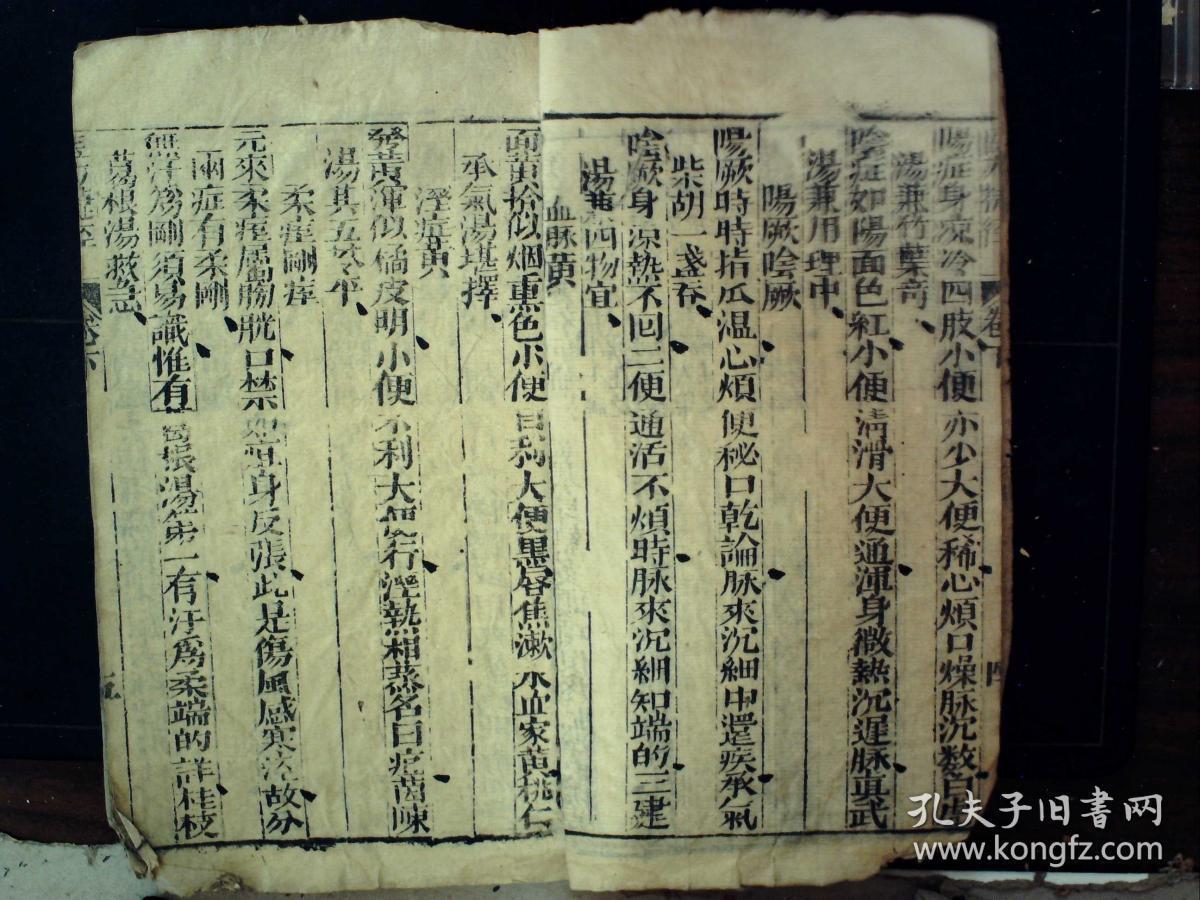 卷下
四
陽症身凉冷四肢小便亦少大便稀心煩口燥脉沉数白虎
湯兼竹葉奇
陰症如陽面色紅小便清滑大便通渾身微熱沉遲脉真武
湯兼用理中
陽厥陰厥
陽厥時時指瓜温心煩便秘口乾論脉來沉細中還疾承氣
柴胡一盞吞
陰厥身凉熱不回二便通活不煩時脉來沉細知端的三建
湯兼四物宜
血脉黄
面黄恰似烟熏色小便自利大便黑唇焦漱水血家黄桃仁
承氣湯堪擇
溼症黄
發黄渾似橘皮明小便不利大便行溼熱相蒸名曰疸茵陳
湯共五苓平
柔痓剛痓
元來柔痓屬膀胱口禁如言身反張此是傷風感寒溼故分
兩症有柔剛
無汗爲剛須易識惟有葛根湯第一有汗爲柔端的詳桂枝
葛根湯救急
卷下
五
孔夫子旧書网
www.kongfz.com